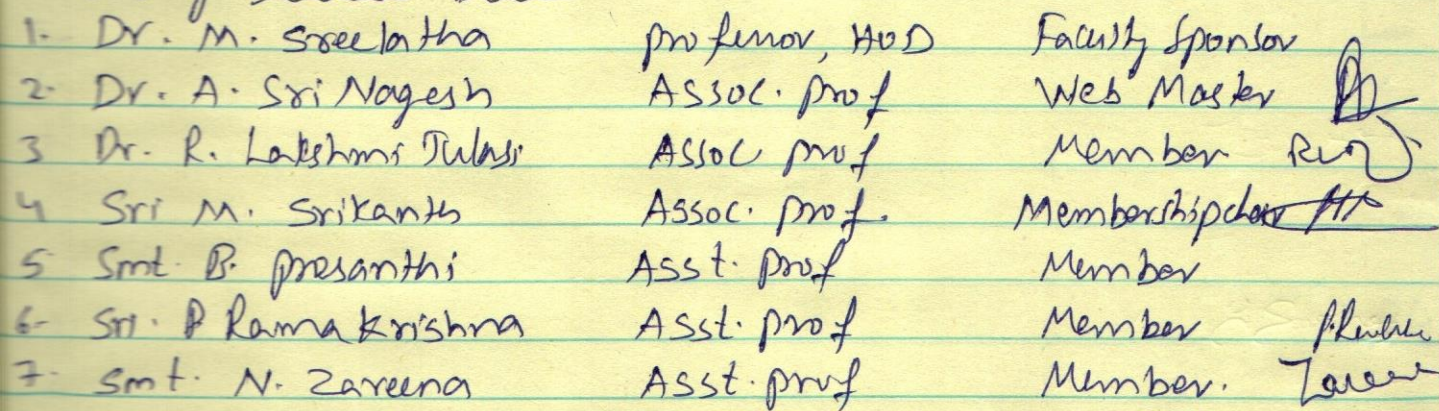 1. Dr. M. Sreelatha professor, HOD Faculty Sponsor
2. Dr. A. Sri Nagesh Assoc. prof Web Master
3 Dr. R. Lakshmi Tulasi Assoc prof Member
4 Sri M. Srikanth Assoc. prof. Membership chair
5 Smt. B. prasanthi Asst. prof Member
6- Sri. P Rama Krishna Asst. prof Member
7. Smt. N. Zareena Asst. prof Member. Zareena